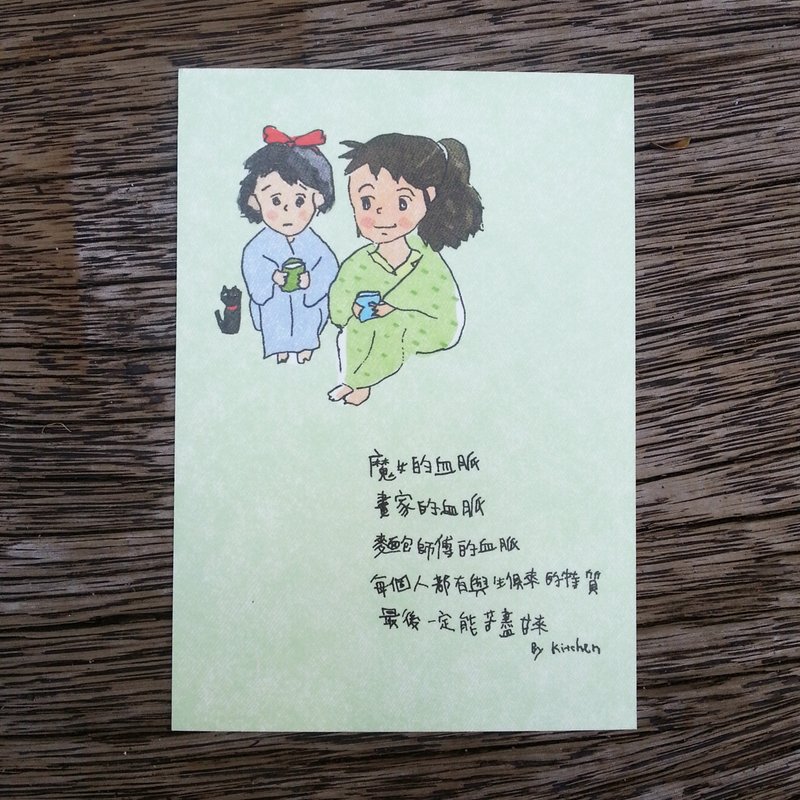 魔女的血脈
畫家的血脈
麵包師傅的血脈
每個人都有與生俱來的特質
最後一定能苦盡甘來
By Kitchen